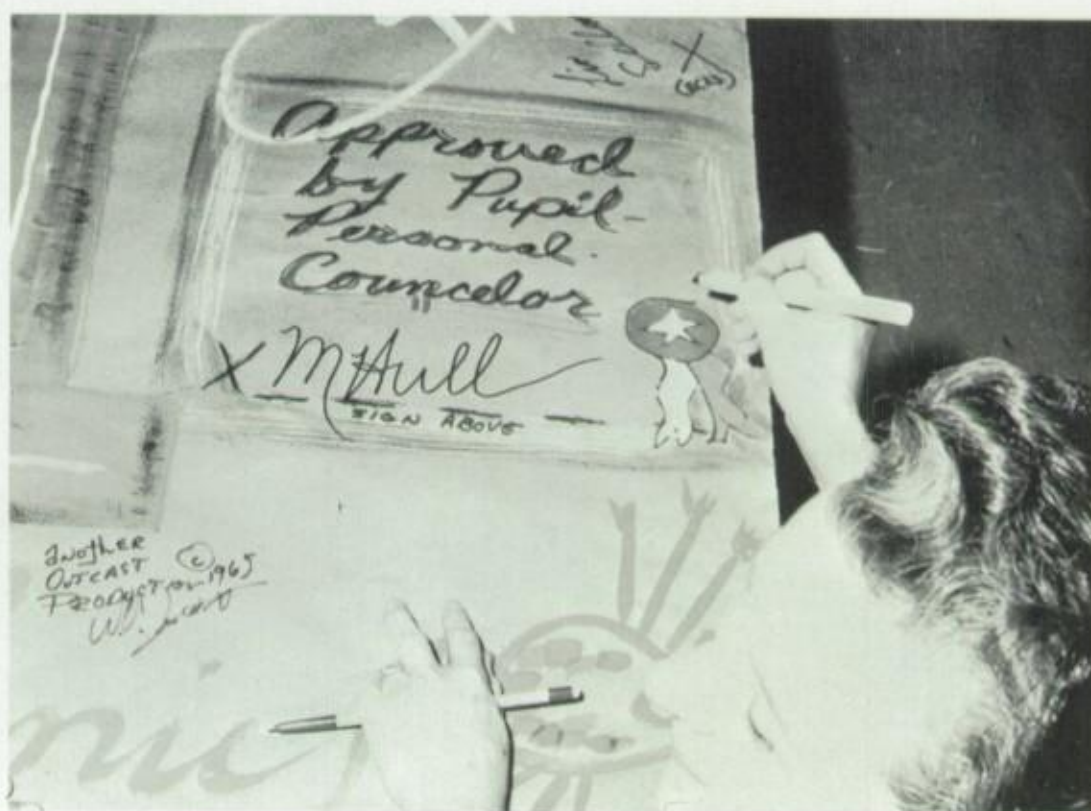 X
Approved
by Pupil-
Personal.
Councelor
X M Hull
SIGN ABOVE
another
OUTCAST ©
PRODUCTION 1965
nic